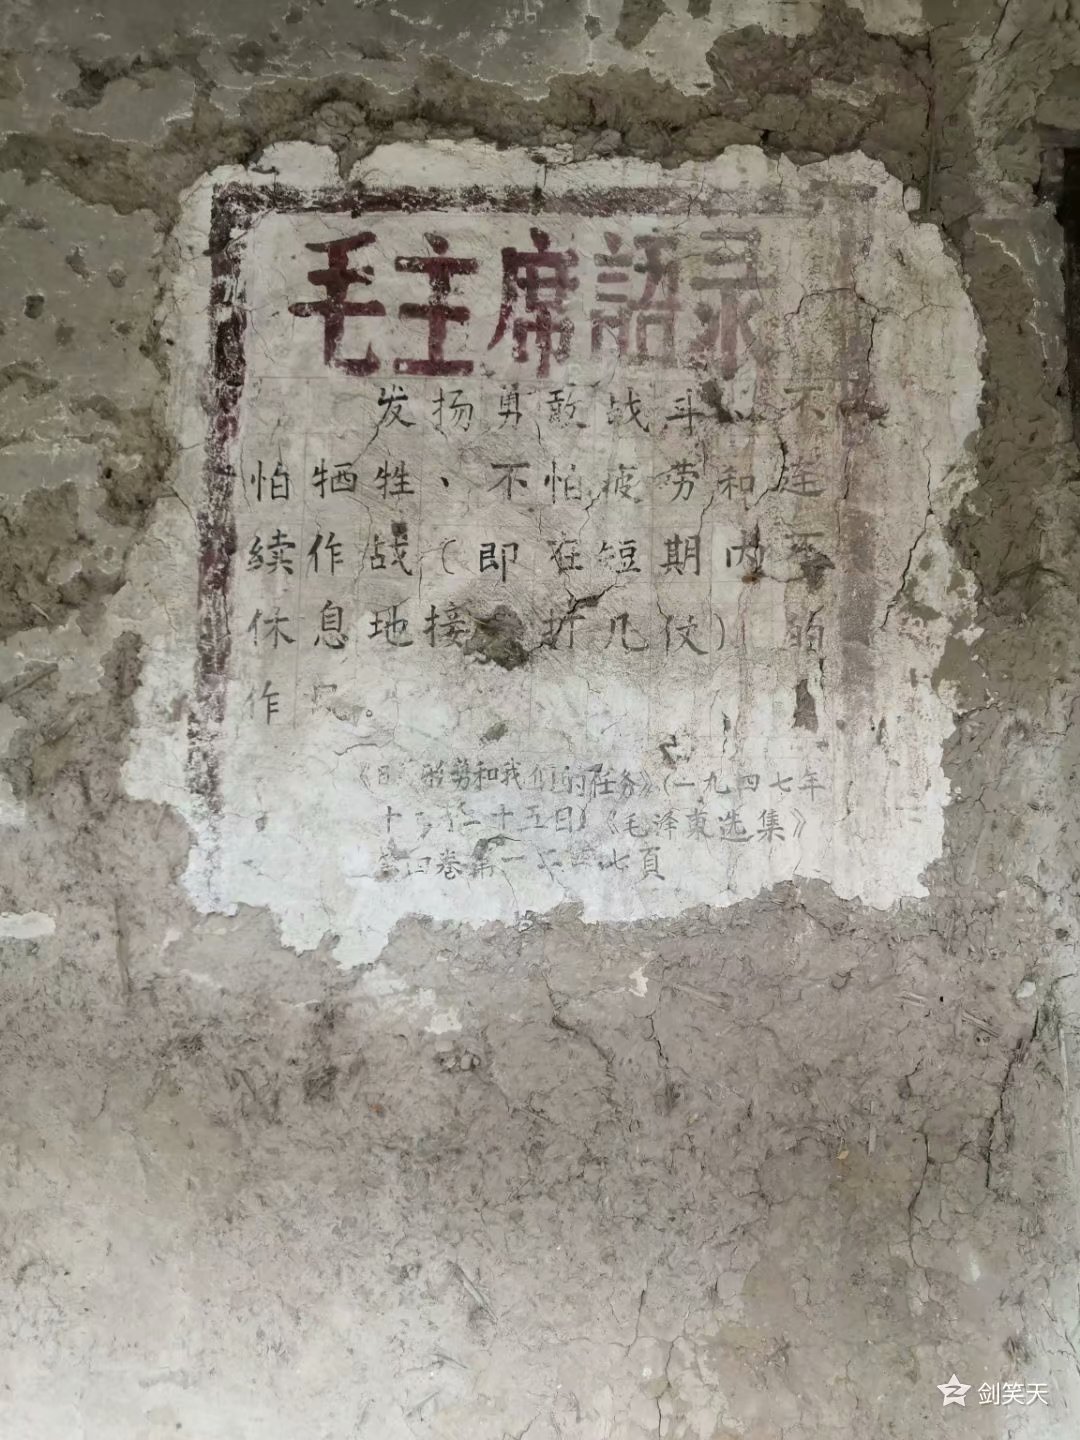 毛主席語录
发扬勇敢战斗、不
怕牺牲、不怕疲劳和连
续作战(即在短期内不
休息地接 打几仗)的
作风。
《目 形势和我们的任务》(一九四七年
十 月二十五日)《毛泽東选集》
第四卷第一二 七頁
剑笑天